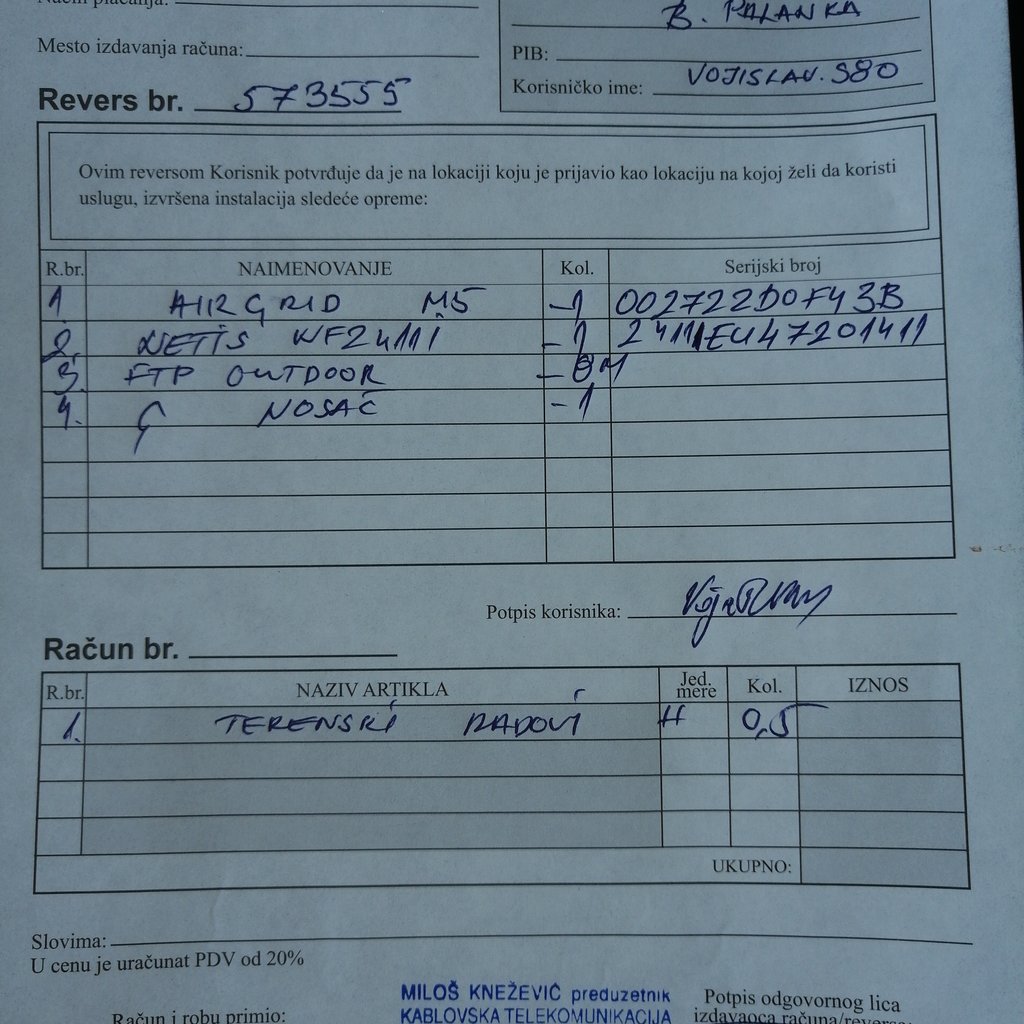 Način plaćanja:
B. PALANKA
Mesto izdavanja računa:
PIB:
Korisničko ime: VOJISLAV.980
Revers br. 573555
Ovim reversom Korisnik potvrđuje da je na lokaciji koju je prijavio kao lokaciju na kojoj želi da koristi
uslugu, izvršena instalacija sledeće opreme:
R.br. NAIMENOVANJE Kol. Serijski broj
1. AIRGRID M5 -1 002722D0F43B
2. NETIS WF2411I -1 2411IEU47201411
3. FTP OUTDOOR -8M
4. NOSAČ -1
Potpis korisnika:
Račun br.
R.br. NAZIV ARTIKLA Jed. mere Kol. IZNOS
1. TERENSKI RADOVI H 0,5
UKUPNO:
Slovima:
U cenu je uračunat PDV od 20%
MILOŠ KNEŽEVIĆ preduzetnik
KABLOVSKA TELEKOMUNIKACIJA
Račun i robu primio:
Potpis odgovornog lica
izdavaoca računa/reversa